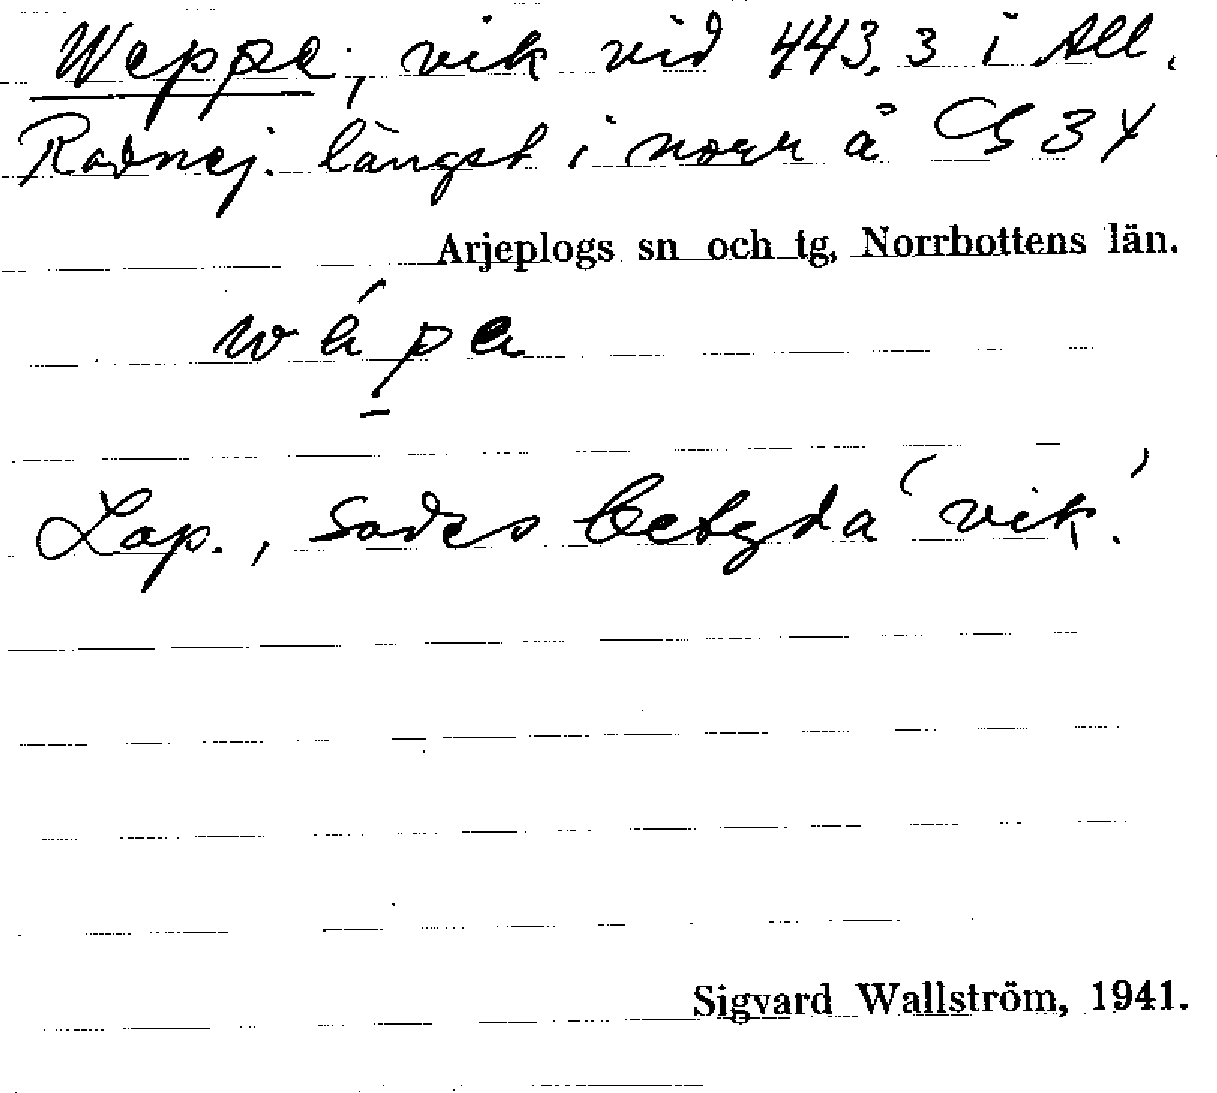 Weppe, vik vid 443.3 i All.
Radnej. längst i norr å GS 34
Arjeplogs sn och tg, Norrbottens län.
Lap., sades betyda 'vik'.
Sigvard Wallström, 1941.